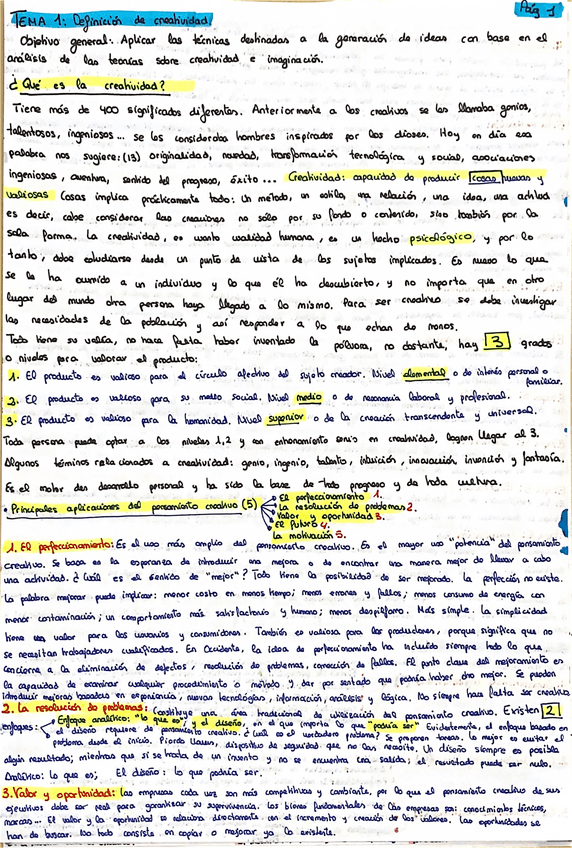 Pág 1
TEMA 1: Definición de creatividad.
Objetivo general: Aplicar las técnicas destinadas a la generación de ideas con base en el
análisis de las teorías sobre creatividad e imaginación.
¿Qué es la creatividad?
Tiene más de 400 significados diferentes. Anteriormente a los creativos se les llamaba genios,
talentosos, ingeniosos... se les consideraba hombres inspirados por los dioses. Hoy en día esa
palabra nos sugiere: (13) originalidad, novedad, transformación tecnológica y social, asociaciones
ingeniosas, aventura, sentido del progreso, éxito... Creatividad: capacidad de producir cosas nuevas y
valiosas Cosas implica prácticamente todo: Un método, un estilo, una relación, una idea, una actitud
es decir, cabe considerar las creaciones no sólo por su fondo o contenido, sino también por la
sola forma. La creatividad, en cuanto cualidad humana, es un hecho psicológico, y por lo
tanto, debe estudiarse desde un punto de vista de los sujetos implicados. Es nuevo lo que
se le ha ocurrido a un individuo y lo que él ha descubierto, y no importa que en otro
lugar del mundo otra persona haya llegado a lo mismo. Para ser creativo se debe investigar
las necesidades de la población y así responder a lo que echan de menos.
Todo tiene su valía, no hace falta haber inventado la pólvora, no obstante, hay 3 grados
o niveles para valorar el producto:
1. El producto es valioso para el círculo afectivo del sujeto creador. Nivel elemental o de interés personal o
familiar.
2. El producto es valioso para su medio social. Nivel medio o de resonancia laboral y profesional.
3. El producto es valioso para la humanidad. Nivel superior o de la creación transcendente y universal.
Toda persona puede optar a los niveles 1, 2 y con entrenamiento serio en creatividad, logran llegar al 3.
Algunos términos relacionados a creatividad: genio, ingenio, talento, intuición, innovación, invención y fantasía.
Es el motor del desarrollo personal y ha sido la base de todo progreso y de toda cultura.
• Principales aplicaciones del pensamiento creativo (5)
El perfeccionamiento 1.
La resolución de problemas 2.
Valor y oportunidad 3.
El futuro 4.
La motivación 5.
1. El perfeccionamiento: Es el uso más amplio del pensamiento creativo. Es el mayor uso "potencia" del pensamiento
creativo. Se basa en la esperanza de introducir una mejora o de encontrar una manera mejor de llevar a cabo
una actividad. ¿Cuál es el sentido de "mejor"? Todo tiene la posibilidad de ser mejorado. La perfección no existe.
La palabra mejorar puede implicar: menor costo en menos tiempo; menos errores y fallos; menos consumo de energía con
menor contaminación; un comportamiento más satisfactorio y humano; menos despilfarro. Más simple. La simplicidad
tiene un valor para los usuarios y consumidores. También es valiosa para los productores, porque significa que no
se necesitan trabajadores cualificados. En Occidente, la idea de perfeccionamiento ha incluido siempre todo lo que
concierne a la eliminación de defectos, resolución de problemas, corrección de fallos. El punto clave del mejoramiento es
la capacidad de examinar cualquier procedimiento o método y dar por sentado que podría haber otro mejor. Se pueden
introducir mejoras basadas en experiencia, nuevas tecnologías, información, análisis y lógica. No siempre hace falta ser creativo
2. La resolución de problemas: Constituye una área tradicional de utilización del pensamiento creativo. Existen 2
enfoques: Enfoque analítico: "lo que es"; y el diseño, en el que importa lo que "podría ser" Evidentemente, el enfoque basado en
el diseño requiere de pensamiento creativo. ¿Cuál es el verdadero problema? Se preparan tareas. Lo mejor es evitar el
problema desde el inicio. Pierdo llaves, dispositivo de seguridad que no las necesite. Un diseño siempre es posible
algún resultado; mientras que si se trata de un invento y no se encuentra una salida, el resultado puede ser nulo.
Analítico: lo que es; El diseño: lo que podría ser.
3. Valor y oportunidad: Las empresas cada vez son más competitivas y cambiante, por lo que el pensamiento creativo de sus
ejecutivos debe ser real para garantizar su supervivencia. Los bienes fundamentales de las empresas son: conocimientos técnicos,
marcas... El valor y la oportunidad se relaciona directamente con el incremento y creación de los valores. Las oportunidades se
han de buscar. No todo consiste en copiar o mejorar ya lo existente.